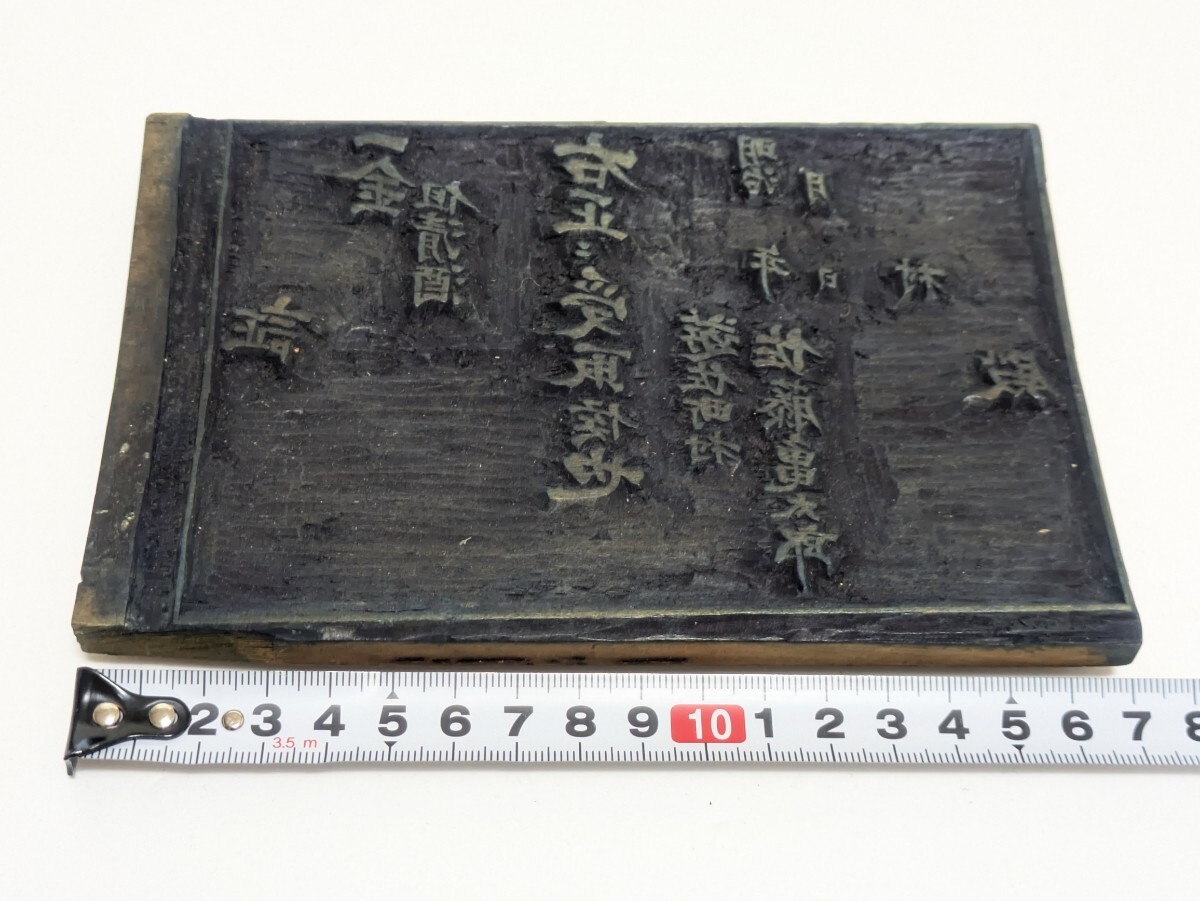 証
一金
但清酒
右正ニ受取候也
遊佐町村
明治 年
月 日
佐藤亀太郎
村
殿
2 3 4 5 6 7 8 9 10 1 2 3 4 5 6 7 8
3.5 m